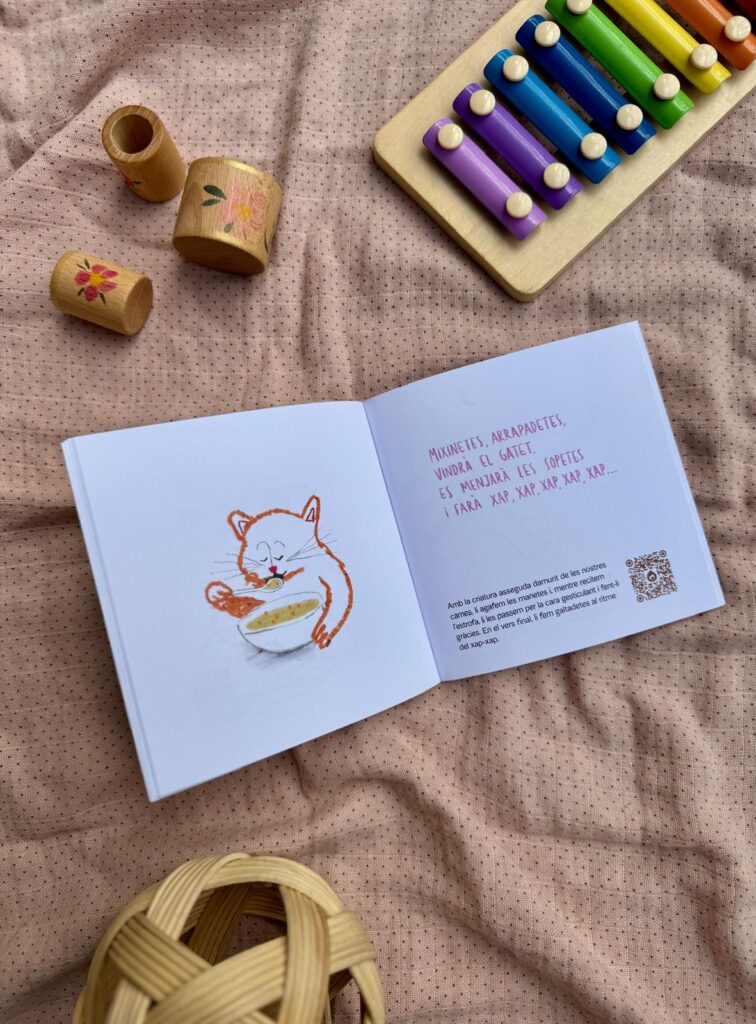 MIXINETES, ARRAPADETES,
VINDRÀ EL GATET,
ES MENJARÀ LES SOPETES
I FARÀ XAP, XAP, XAP, XAP, XAP...
Amb la criatura asseguda damunt de les nostres
cames, li agafem les manetes i, mentre recitem
l'estrofa, li les passem per la cara gesticulant i fent-li
gràcies. En el vers final, li fem galtadetes al ritme
del xap-xap.